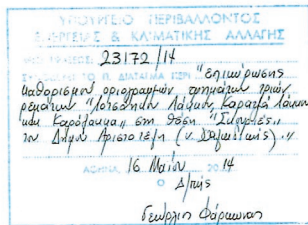 ΥΠΟΥΡΓΕΙΟ ΠΕΡΙΒΑΛΛΟΝΤΟΣ
ΕΝΕΡΓΕΙΑΣ & ΚΛΙΜΑΤΙΚΗΣ ΑΛΛΑΓΗΣ
23172/14
ΤΟ Π. ΔΙΑΤΑΓΜΑ ΠΕΡΙ "επικύρωσης
καθορισμού οριογραμμών τμημάτων τριών
ρεμάτων "Λοτσάνικο Λάκκος, Καρατζά Λάκκος
και Καρόλακκας" στη θέση "Σκουριές"
του Δήμου Αριστοτέλη (ν. Χαλκιδικής)."
ΑΘΗΝΑ, 16 Μαΐου 2014
Ο Δ/ντής
Γεώργιος